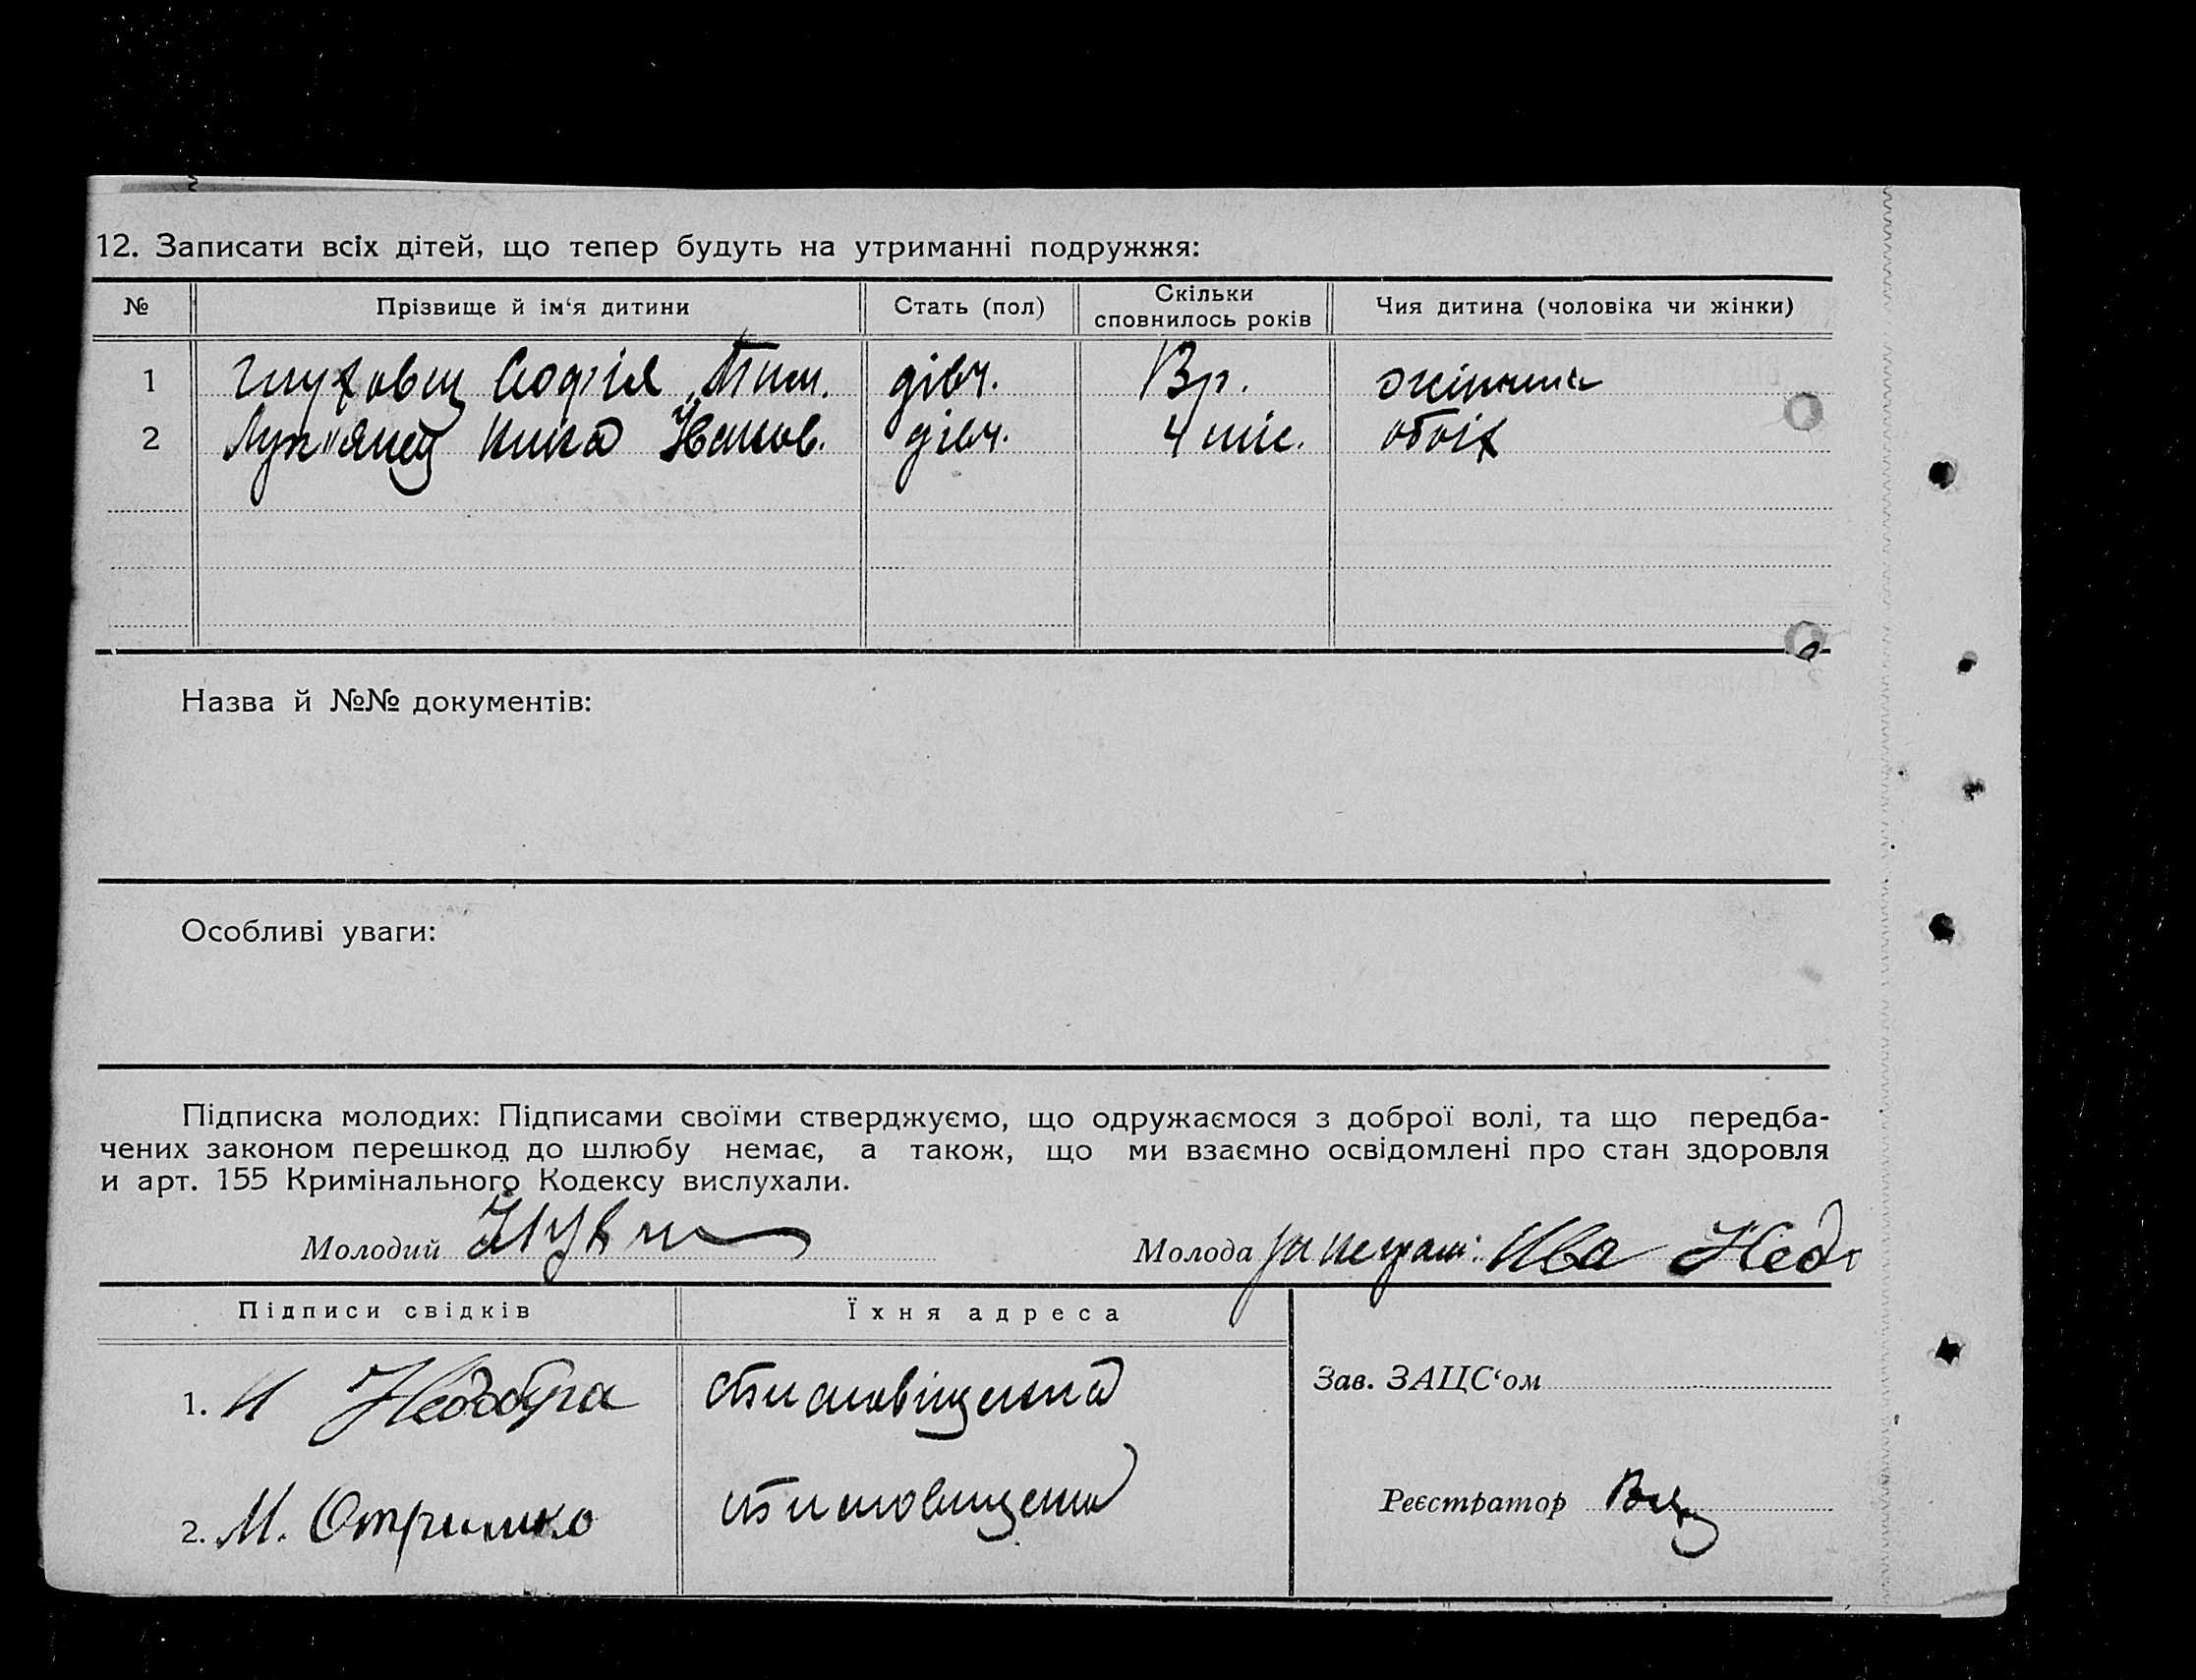 12. Записати всіх дітей, що тепер будуть на утриманні подружжя:
№ Прізвище й ім‘я дитини Стать (пол) Скільки сповнилось років Чия дитина (чоловіка чи жінки)
1 Глуховец Софія дівч. 13 р.
2 Лук"янец Нина Иванов. дівч. 4 міс. обоіх
Назва й №№ документів:
Особливі уваги:
Підписка молодих: Підписами своїми стверджуємо, що одружаємося з доброї волі, та що передба-
чених законом перешкод до шлюбу немає, а також, що ми взаємно освідомлені про стан здоровля
и арт. 155 Кримінального Кодексу вислухали.
Молодий Молода за неграм.
Підписи свідків Їхня адреса
Зав. ЗАЦС‘ом
1. И Недобура
2. М. Отришко
Реєстратор